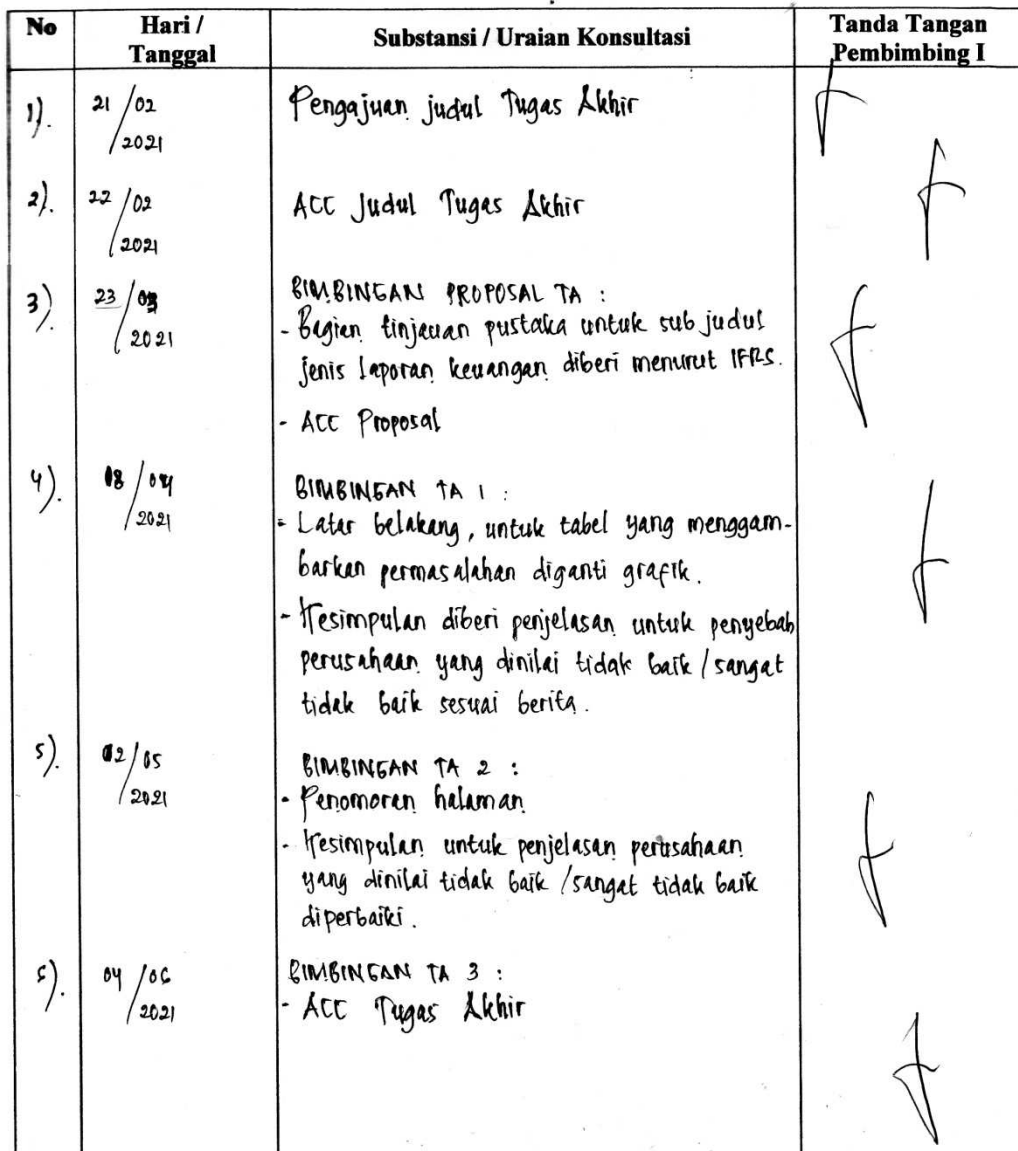 No Hari / Tanggal Substansi / Uraian Konsultasi Tanda Tangan Pembimbing I
1). 21/02/2021 Pengajuan judul Tugas Akhir
2). 22/02/2021 ACC Judul Tugas Akhir
3). 23/03/2021 BIMBINGAN PROPOSAL TA :
- Bagian tinjauan pustaka untuk sub judul
jenis laporan keuangan diberi menurut IFRS.
- ACC Proposal
4). 08/04/2021 BIMBINGAN TA 1 :
- Latar belakang, untuk tabel yang menggam-
barkan permasalahan diganti grafik.
- Kesimpulan diberi penjelasan untuk penyebab
perusahaan yang dinilai tidak baik / sangat
tidak baik sesuai berita.
5). 02/05/2021 BIMBINGAN TA 2 :
- Penomoran halaman
- Kesimpulan untuk penjelasan perusahaan
yang dinilai tidak baik / sangat tidak baik
diperbaiki.
6). 04/06/2021 BIMBINGAN TA 3 :
- ACC Tugas Akhir